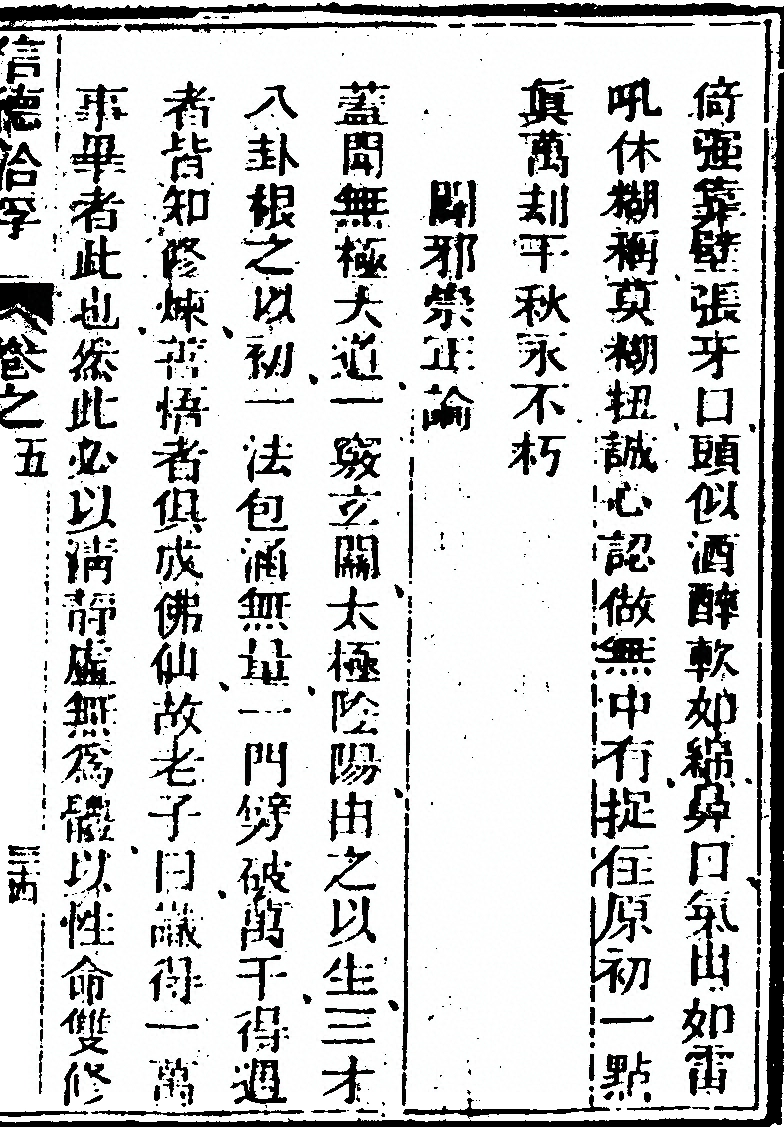 倚強靠壁張牙口頭似酒醉軟如綿鼻口氣出如雷
吼休糊稱莫糊扭誠心認做無中有捉住原初一點
眞萬刼千秋永不朽
闢邪崇正論
蓋聞無極大道一竅立關太極陰陽由之以生三才
八卦根之以初一法包涵無量一門劈破萬千得遇
者皆知修煉善悟者俱成佛仙故老子曰識得一萬
事畢者此也然此必以清靜虛無爲體以性命雙修
信德洽孚 卷之五 三十四